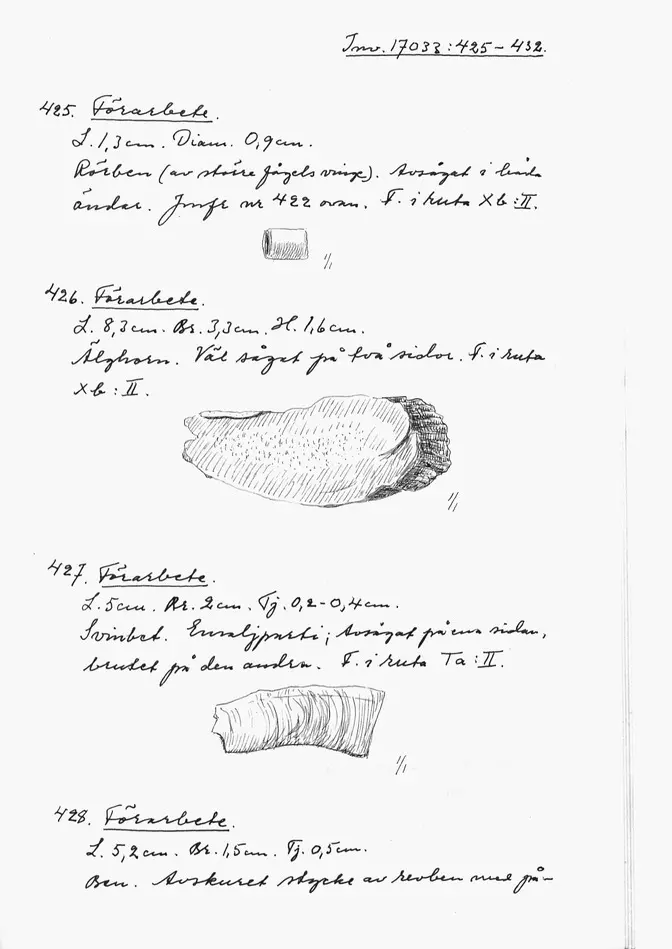 Inv. 17033:425-432.
425. Förarbete.
L. 1,3 cm. Diam. 0,9 cm.
Rörben (av större fågels vinge). Avsågat i båda
ändar. Jmfr nr 422 ovan. F. i ruta Xb:II.
1/1
426. Förarbete.
L. 8,3 cm. Br. 3,3 cm. H. 1,6 cm.
Älghorn. Väl sågat på två sidor. F. i ruta
Xb:II.
1/1
427. Förarbete.
L. 5 cm. Br. 2 cm. Tj. 0,2-0,4 cm.
Svinbet. Emaljparti; avsågat på ena sidan,
brutet på den andra. F. i ruta Ta:II.
1/1
428. Förarbete.
L. 5,2 cm. Br. 1,5 cm. Tj. 0,5 cm.
Ben. Avskuret stycke av revben med på-